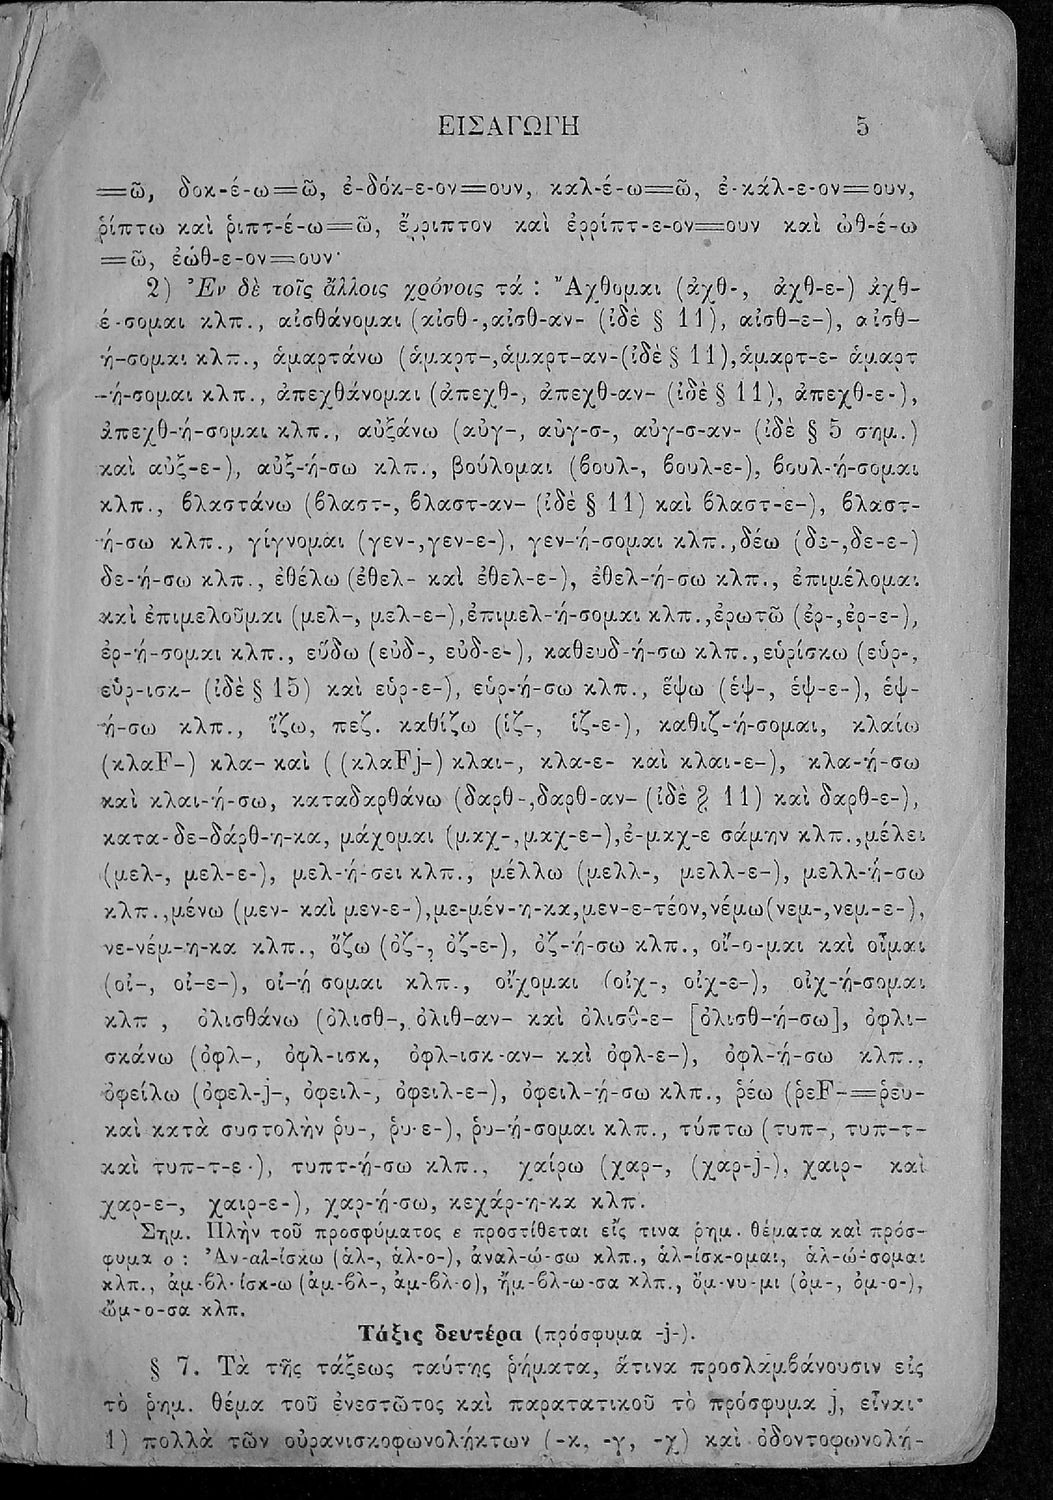 ΕΙΣΑΓΩΓΗ 5
=ῶ, δοκ-έ-ω=ῶ, ἐ-δόκ-ε-ον=ουν, καλ-έ-ω=ῶ, ἐ-κάλ-ε-ον=ουν,
ῥίπτω καὶ ῥιπτ-έ-ω=ῶ, ἔρριπτον καὶ ἐρρίπτ-ε-ον=ουν καὶ ὠθ-έ-ω
=ῶ, ἐώθ-ε-ον=ουν·
2) Ἐν δὲ τοῖς ἄλλοις χρόνοις τά : Ἄχθομαι (ἀχθ-, ἀχθ-ε-) ἀχθ-
έ-σομαι κλπ., αἰσθάνομαι (αἰσθ-,αἰσθ-αν- (ἰδὲ § 11), αἰσθ-ε-), αἰσθ-
ή-σομαι κλπ., ἁμαρτάνω (ἁμαρτ-,ἁμαρτ-αν-(ἰδὲ § 11),ἁμαρτ-ε- ἁμαρτ
-ή-σομαι κλπ., ἀπεχθάνομαι (ἀπεχθ-, ἀπεχθ-αν- (ἰδὲ § 11), ἀπεχθ-ε-),
ἀπεχθ-ή-σομαι κλπ., αὐξάνω (αὐγ-, αὐγ-σ-, αὐγ-σ-αν- (ἰδὲ § 5 σημ.)
καὶ αὐξ-ε-), αὐξ-ή-σω κλπ., βούλομαι (βουλ-, βουλ-ε-), βουλ-ή-σομαι
κλπ., βλαστάνω (βλαστ-, βλαστ-αν- (ἰδὲ § 11) καὶ βλαστ-ε-), βλαστ-
ή-σω κλπ., γίγνομαι (γεν-,γεν-ε-), γεν-ή-σομαι κλπ.,δέω (δε-,δε-ε-)
δε-ή-σω κλπ., ἐθέλω (ἐθελ- καὶ ἐθελ-ε-), ἐθελ-ή-σω κλπ., ἐπιμέλομαι
καὶ ἐπιμελοῦμαι (μελ-, μελ-ε-),ἐπιμελ-ή-σομαι κλπ.,ἐρωτῶ (ἐρ-,ἐρ-ε-),
ἐρ-ή-σομαι κλπ., εὕδω (εὑδ-, εὑδ-ε-), καθευδ-ή-σω κλπ.,εὑρίσκω (εὑρ-,
εὑρ-ισκ- (ἰδὲ § 15) καὶ εὑρ-ε-), εὑρ-ή-σω κλπ., ἕψω (ἑψ-, ἑψ-ε-), ἑψ-
ή-σω κλπ., ἵζω, πεζ. καθίζω (ἱζ-, ἱζ-ε-), καθιζ-ή-σομαι, κλαίω
(κλαF-) κλα- καὶ ( (κλαFj-) κλαι-, κλα-ε- καὶ κλαι-ε-), κλα-ή-σω
καὶ κλαι-ή-σω, καταδαρθάνω (δαρθ-,δαρθ-αν- (ἰδὲ § 11) καὶ δαρθ-ε-),
κατα-δε-δάρθ-η-κα, μάχομαι (μαχ-,μαχ-ε-),ἐ-μαχ-ε σάμην κλπ.,μέλει
(μελ-, μελ-ε-), μελ-ή-σει κλπ., μέλλω (μελλ-, μελλ-ε-), μελλ-ή-σω
κλπ.,μένω (μεν- καὶ μεν-ε-),με-μέν-η-κα,μεν-ε-τέον,νέμω(νεμ-,νεμ-ε-),
νε-νέμ-η-κα κλπ., ὄζω (ὀζ-, ὀζ-ε-), ὀζ-ή-σω κλπ., οἴ-ο-μαι καὶ οἶμαι
(οἰ-, οἰ-ε-), οἰ-ή σομαι κλπ., οἴχομαι (οἰχ-, οἰχ-ε-), οἰχ-ή-σομαι
κλπ , ὀλισθάνω (ὀλισθ-, ὀλιθ-αν- καὶ ὀλισθ-ε- [ὀλισθ-ή-σω], ὀφλι-
σκάνω (ὀφλ-, ὀφλ-ισκ, ὀφλ-ισκ-αν- καὶ ὀφλ-ε-), ὀφλ-ή-σω κλπ.,
ὀφείλω (ὀφελ-j-, ὀφειλ-, ὀφειλ-ε-), ὀφειλ-ή-σω κλπ., ῥέω (ῥεF-=ῥευ-
καὶ κατὰ συστολὴν ῥυ-, ῥυ-ε-), ῥυ-ή-σομαι κλπ., τύπτω (τυπ-, τυπ-τ-
καὶ τυπ-τ-ε-), τυπτ-ή-σω κλπ., χαίρω (χαρ-, (χαρ-j-), χαιρ- καὶ
χαρ-ε-, χαιρ-ε-), χαρ-ή-σω, κεχάρ-η-κα κλπ.
Σημ. Πλὴν τοῦ προσφύματος ε προστίθεται εἴς τινα ῥημ. θέματα καὶ πρόσ-
φυμα ο : Ἀν-αλ-ίσκω (ἁλ-, ἁλ-ο-), ἀναλ-ώ-σω κλπ., ἁλ-ίσκ-ομαι, ἁλ-ώ-σομαι
κλπ., ἀμ-βλ-ίσκ-ω (ἀμ-βλ-, ἀμ-βλ-ο), ἤμ-βλ-ω-σα κλπ., ὄμ-νυ-μι (ὀμ-, ὀμ-ο-),
ὤμ-ο-σα κλπ.
Τάξις δευτέρα (πρόσφυμα -j-).
§ 7. Τὰ τῆς τάξεως ταύτης ῥήματα, ἅτινα προσλαμβάνουσιν εἰς
τὸ ῥημ. θέμα τοῦ ἐνεστῶτος καὶ παρατατικοῦ τὸ πρόσφυμα j, εἶναι·
1) πολλὰ τῶν οὐρανισκοφωνολήκτων (-κ, -γ, -χ) καὶ ὀδοντοφωνολή-